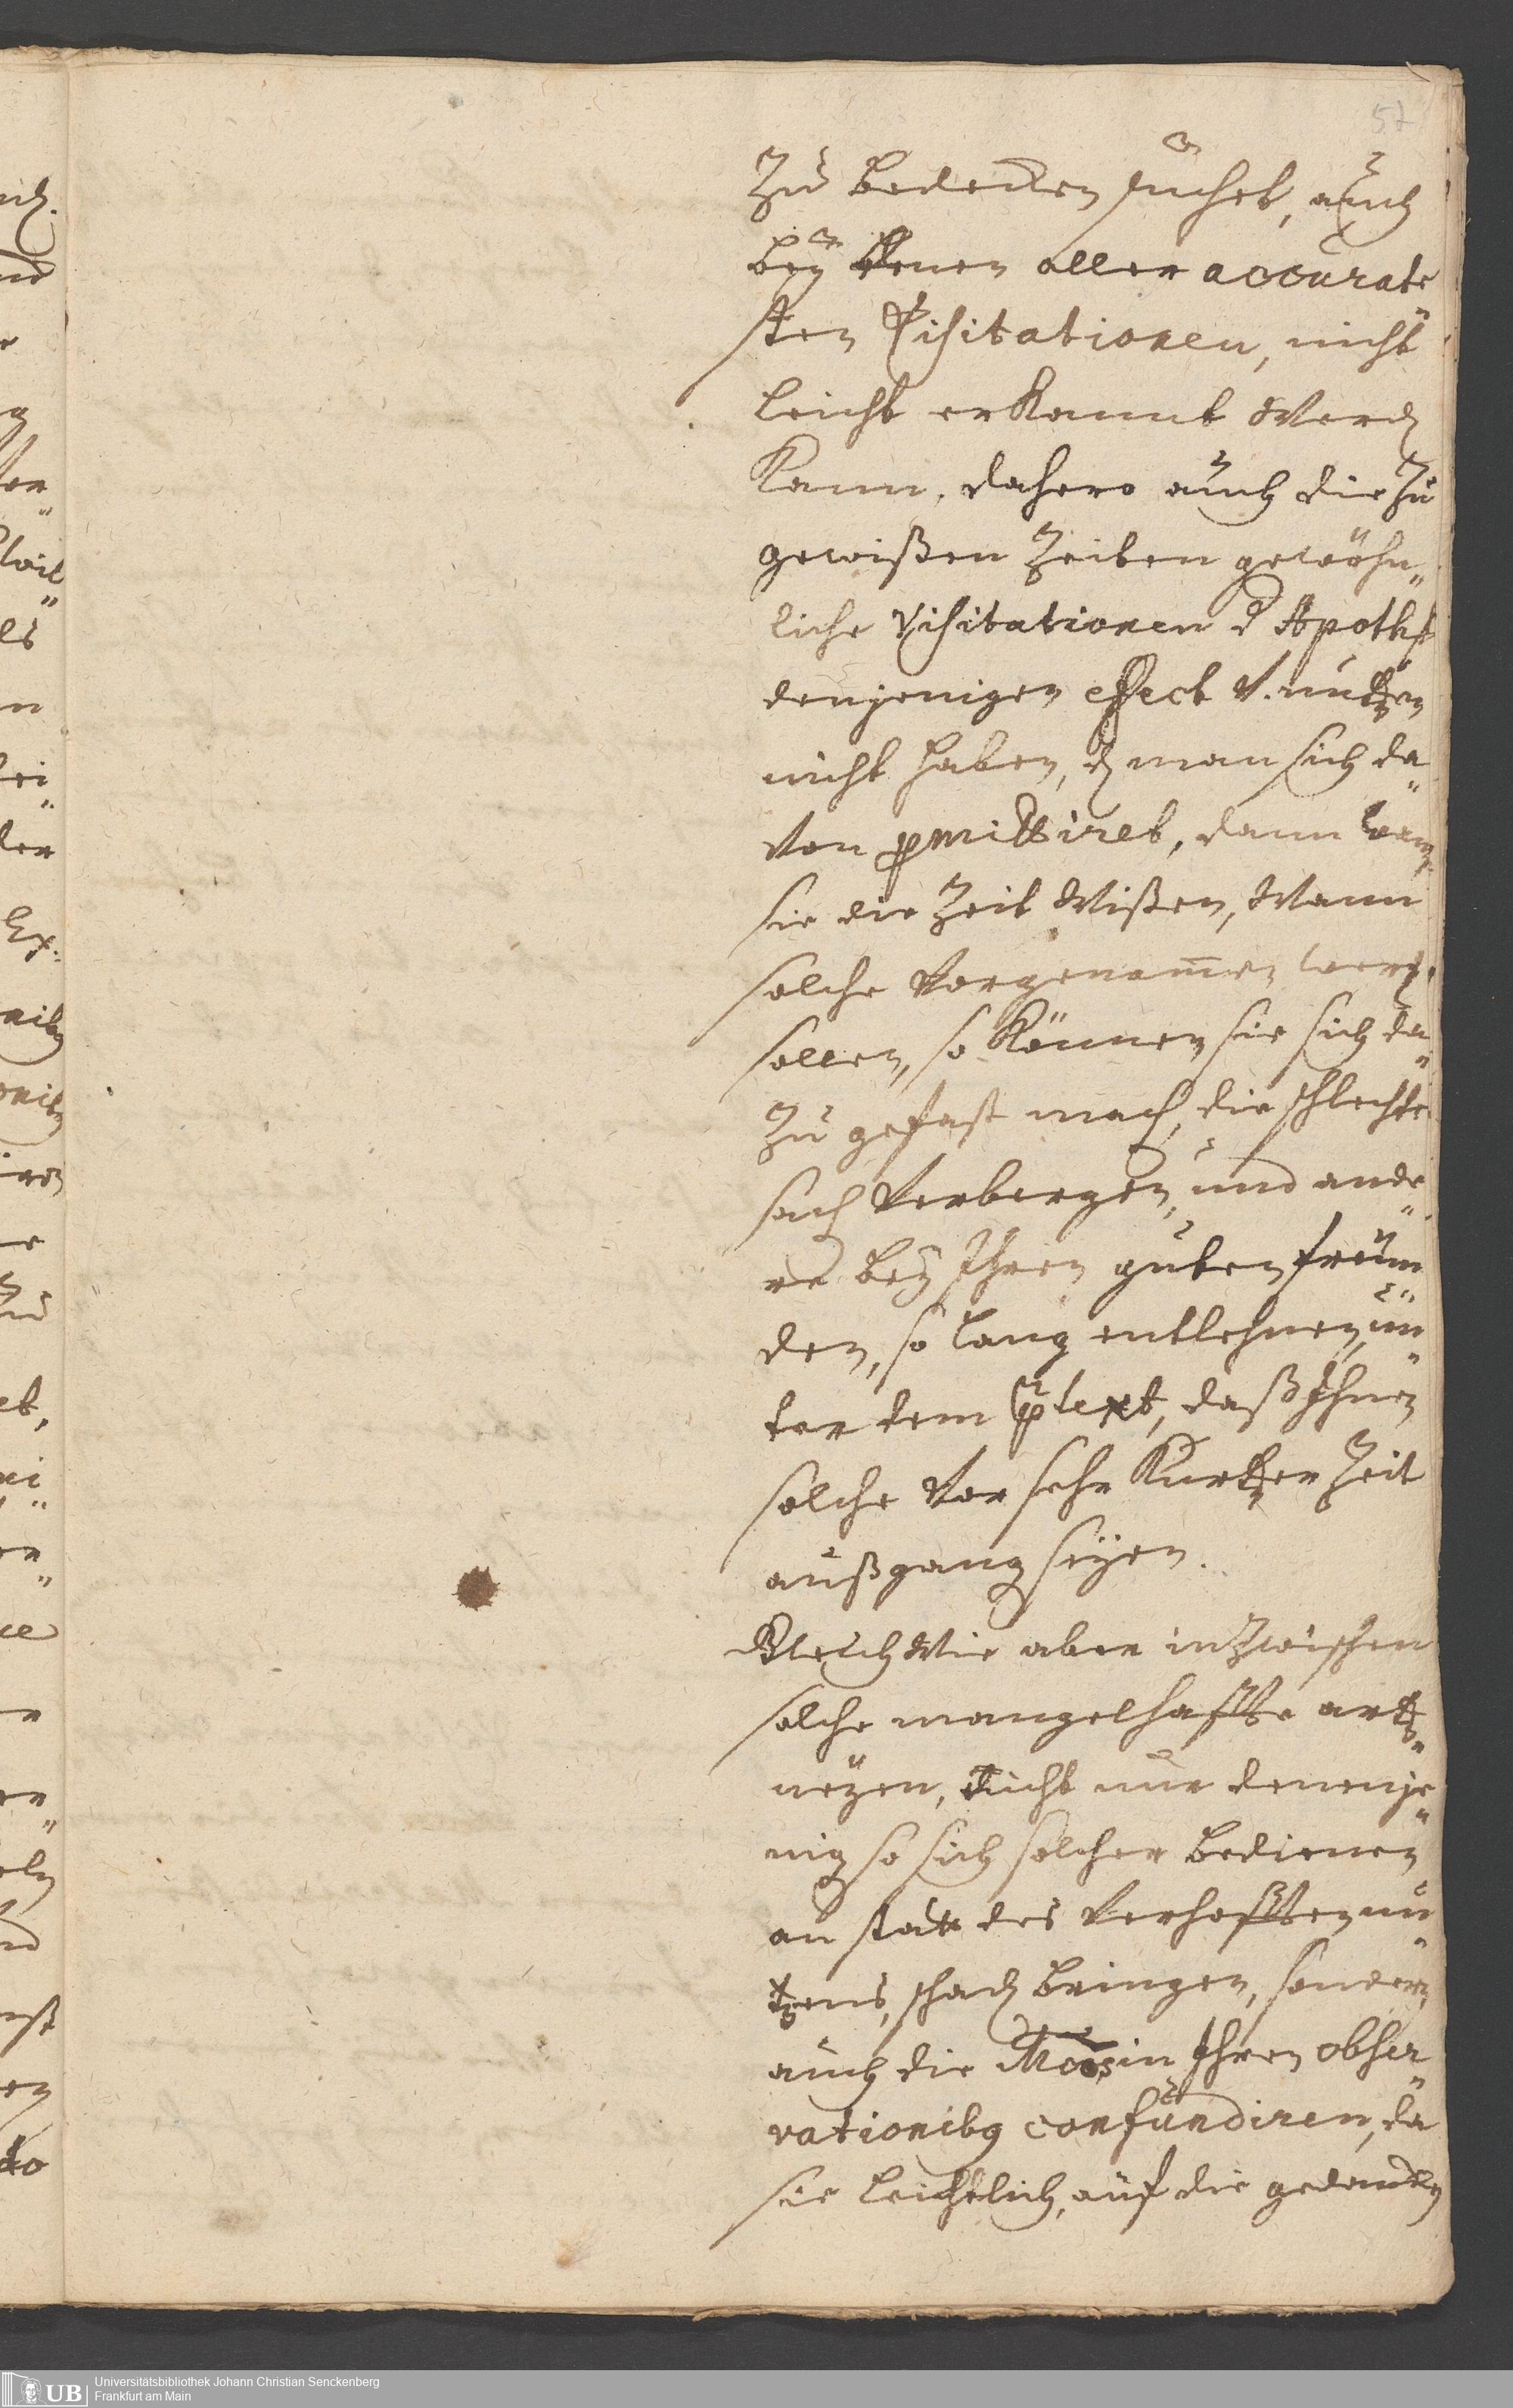 57
Zu bedecken suchet, auch
beÿ denen aller accurate„
sten Visitationen, nicht
leicht erkannt werdẽ
kann. dahero auch die zu
gewißen Zeiten gewöhn„
liche Visitationen d Apothek
denjenigen effect v. nutzen
nicht haben, dẽ man sich da„
von promittiret, dann wann
sie die Zeit wißen, wann
solche vorgenom̅en werdẽ
sollen, so können sie sich da„
Zu gefast machẽ, die schlechte
sachẽ verbergen, und ande„
re beÿ Ihren guten freun„
den, so lang entlehnen, un„
ter dem prætext, daß Ihnen
solche vor sehr kurtzer Zeit
außgang seÿen.
Gleich wie aber inzwischen
solche mangelhaffte artz„
neÿen, nicht nur denenje„
nig so sich solcher bedienen
an statt des verhofften nu„
tzens, schadẽ bringen, sondern
auch die Mcos in Ihren obser„
vationibq confundiren, da
sie leichtlich, auf die gedancken
UB
Universitätsbibliothek Johann Christian Senckenberg
Frankfurt am Main